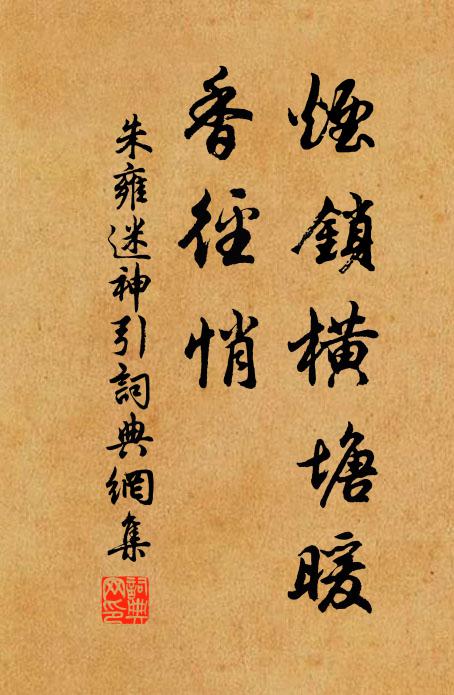 煙鎖橫塘暖
香徑悄
朱雍迷神引詞典網集
詞典网印